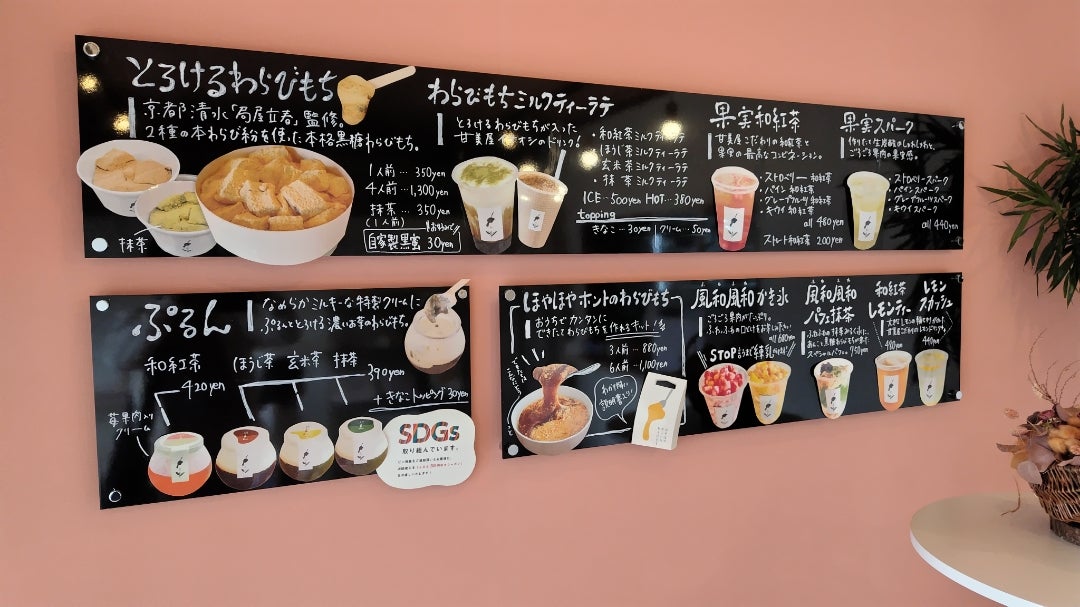 とろけるわらびもち
京都 清水「局屋立春」監修。
2種の本わらび粉を使った本格黒糖わらびもち。
1人前… 350yen
4人前… 1,300yen
抹茶… 350yen
(1人前)
自家製黒蜜 30yen
抹茶
わらびもちミルクティーラテ
とろけるわらびもちが入った
甘美屋
のドリンク!
・和紅茶ミルクティーラテ
・ほうじ茶ミルクティーラテ
・玄米茶ミルクティーラテ
・抹茶ミルクティーラテ
ICE…500yen HOT…380yen
topping
きなこ…30yen | クリーム…50yen
果実和紅茶
甘美屋こだわりの和紅茶と
果実の最高なコンビネーション。
・ストロベリー 和紅茶
・パイン 和紅茶
・グレープフルーツ 和紅茶
・キウイ 和紅茶
all 480yen
ストレート和紅茶 200yen
果実スパーク
ごろごろ果肉の
・ストロベリースパーク
・パインスパーク
・グレープフルーツスパーク
・キウイスパーク
all 440yen
ぷるん
なめらかミルキーな特製クリームに
ぷるんととろける濃いお茶のわらびもち。
和紅茶 ほうじ茶 玄米茶 抹茶
420yen
390yen
+きなこトッピング30yen
苺果肉入り
クリーム
SDGs
取り組んでいます。
ほやほやホントのわらびもち
おうちでカンタンに
できたてわらびもちを作れるキット!
3人前… 880yen
6人前… 1,100yen
わかり易い
説明書入り!
風和風和かき氷
ごろごろ果肉がたっぷり。
all 680yen
風和風和
パフェ抹茶
あんこと黒糖わらびもちが
スペシャルパフェ 950yen
和紅茶
レモンティー
480yen
レモン
スカッシュ
440yen